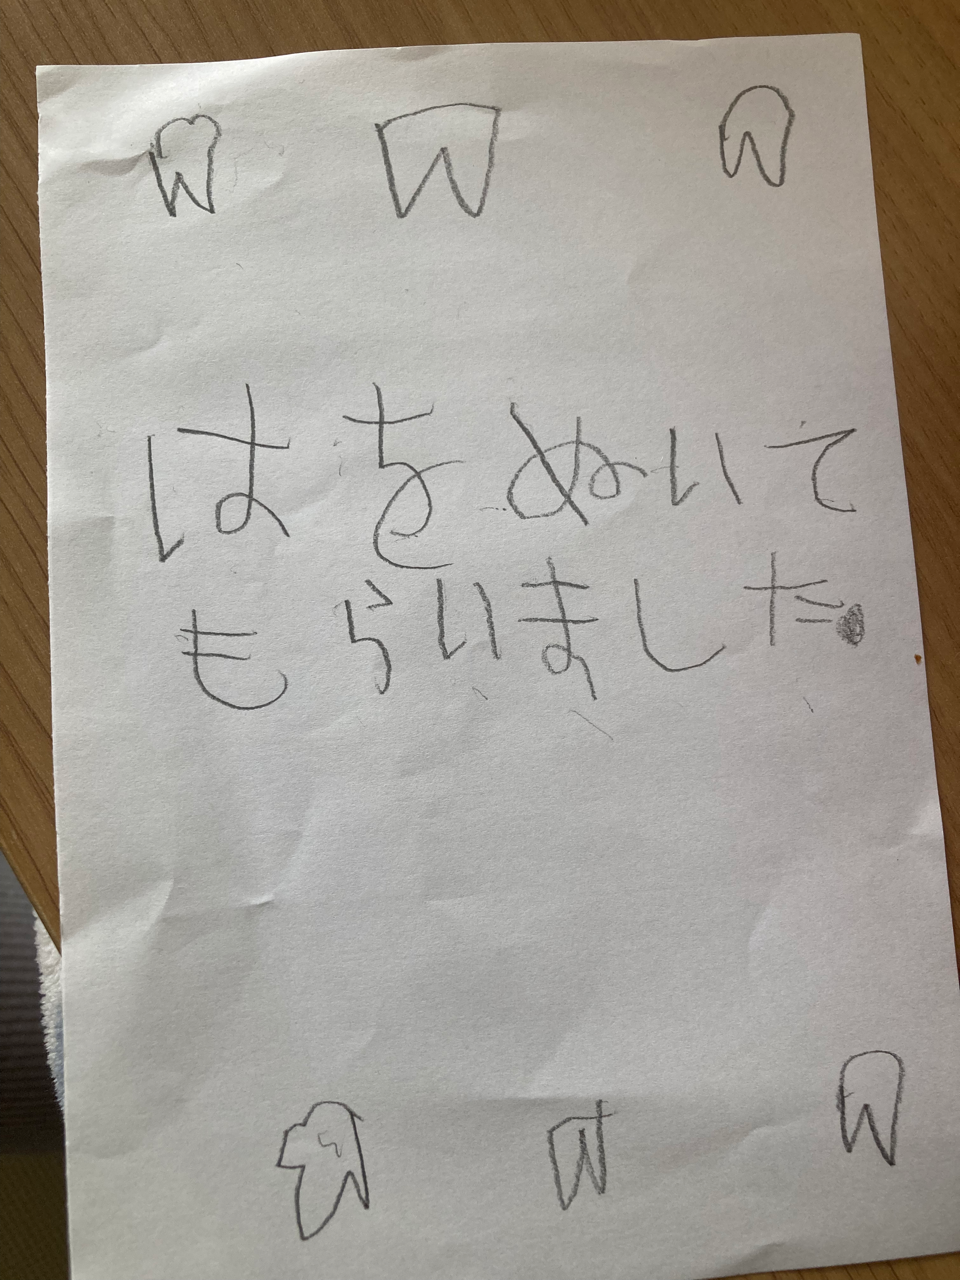 はをぬいて
もらいました。